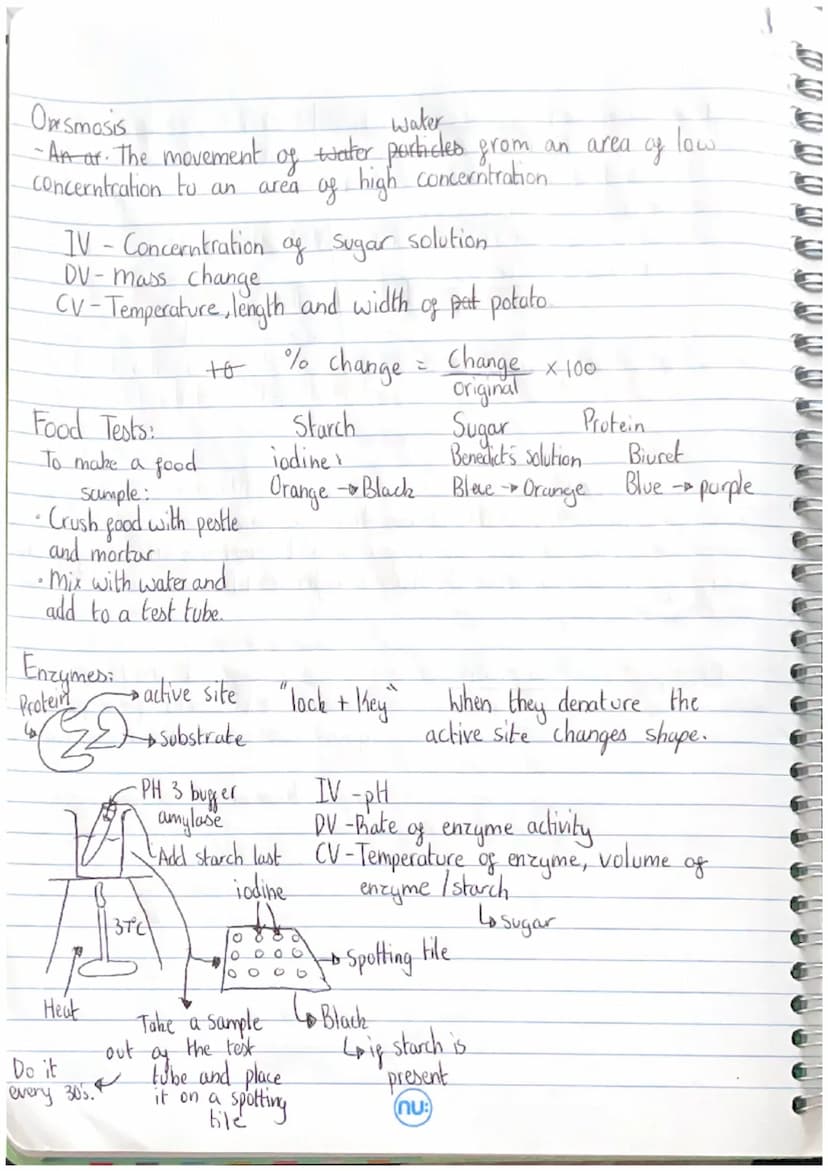 Osmosis
water
- An ar. The movement of water particles from an area of low
concerntration to an area of high concerntration
IV - Concerntration of sugar solution
DV - mass change
CV - Temperature, length and width of pot potato
to % change = Change / original × 100
Food Tests: Starch Sugar Protein
To make a food iodine: Benedict's solution Biuret
sample: Orange → Black Blue → Orange Blue → purple
• Crush food with pestle
and mortar
• Mix with water and
add to a test tube.
Enzymes:
Protein → active site "lock + Key" When they denature the
→ Substrate active site changes shape.
PH 3 buffer IV - pH
amylase DV - Rate of enzyme activity
Add starch last CV - Temperature of enzyme, volume of
iodine enzyme / starch
37°C ↳ sugar
→ Spotting tile
Heat
Take a sample ↳ Black
out of the test ↳ if starch is
Do it tube and place present
every 30s. it on a spotting
tile
nu: